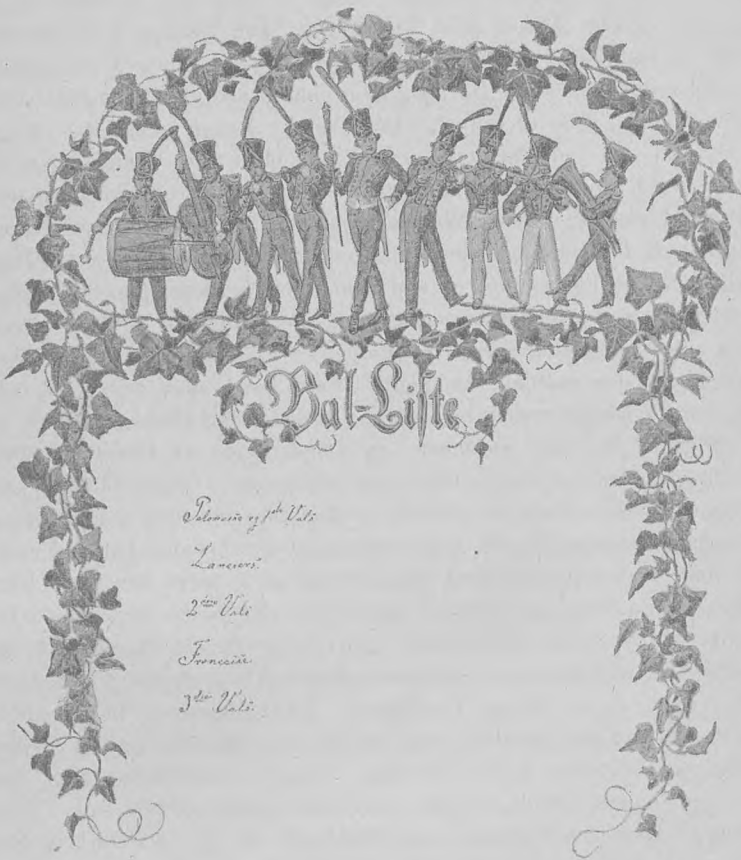 Bal-Liste
Polonaise og 1ste Vals
Lanciers.
2den Vals
Francaise.
3die Vals.